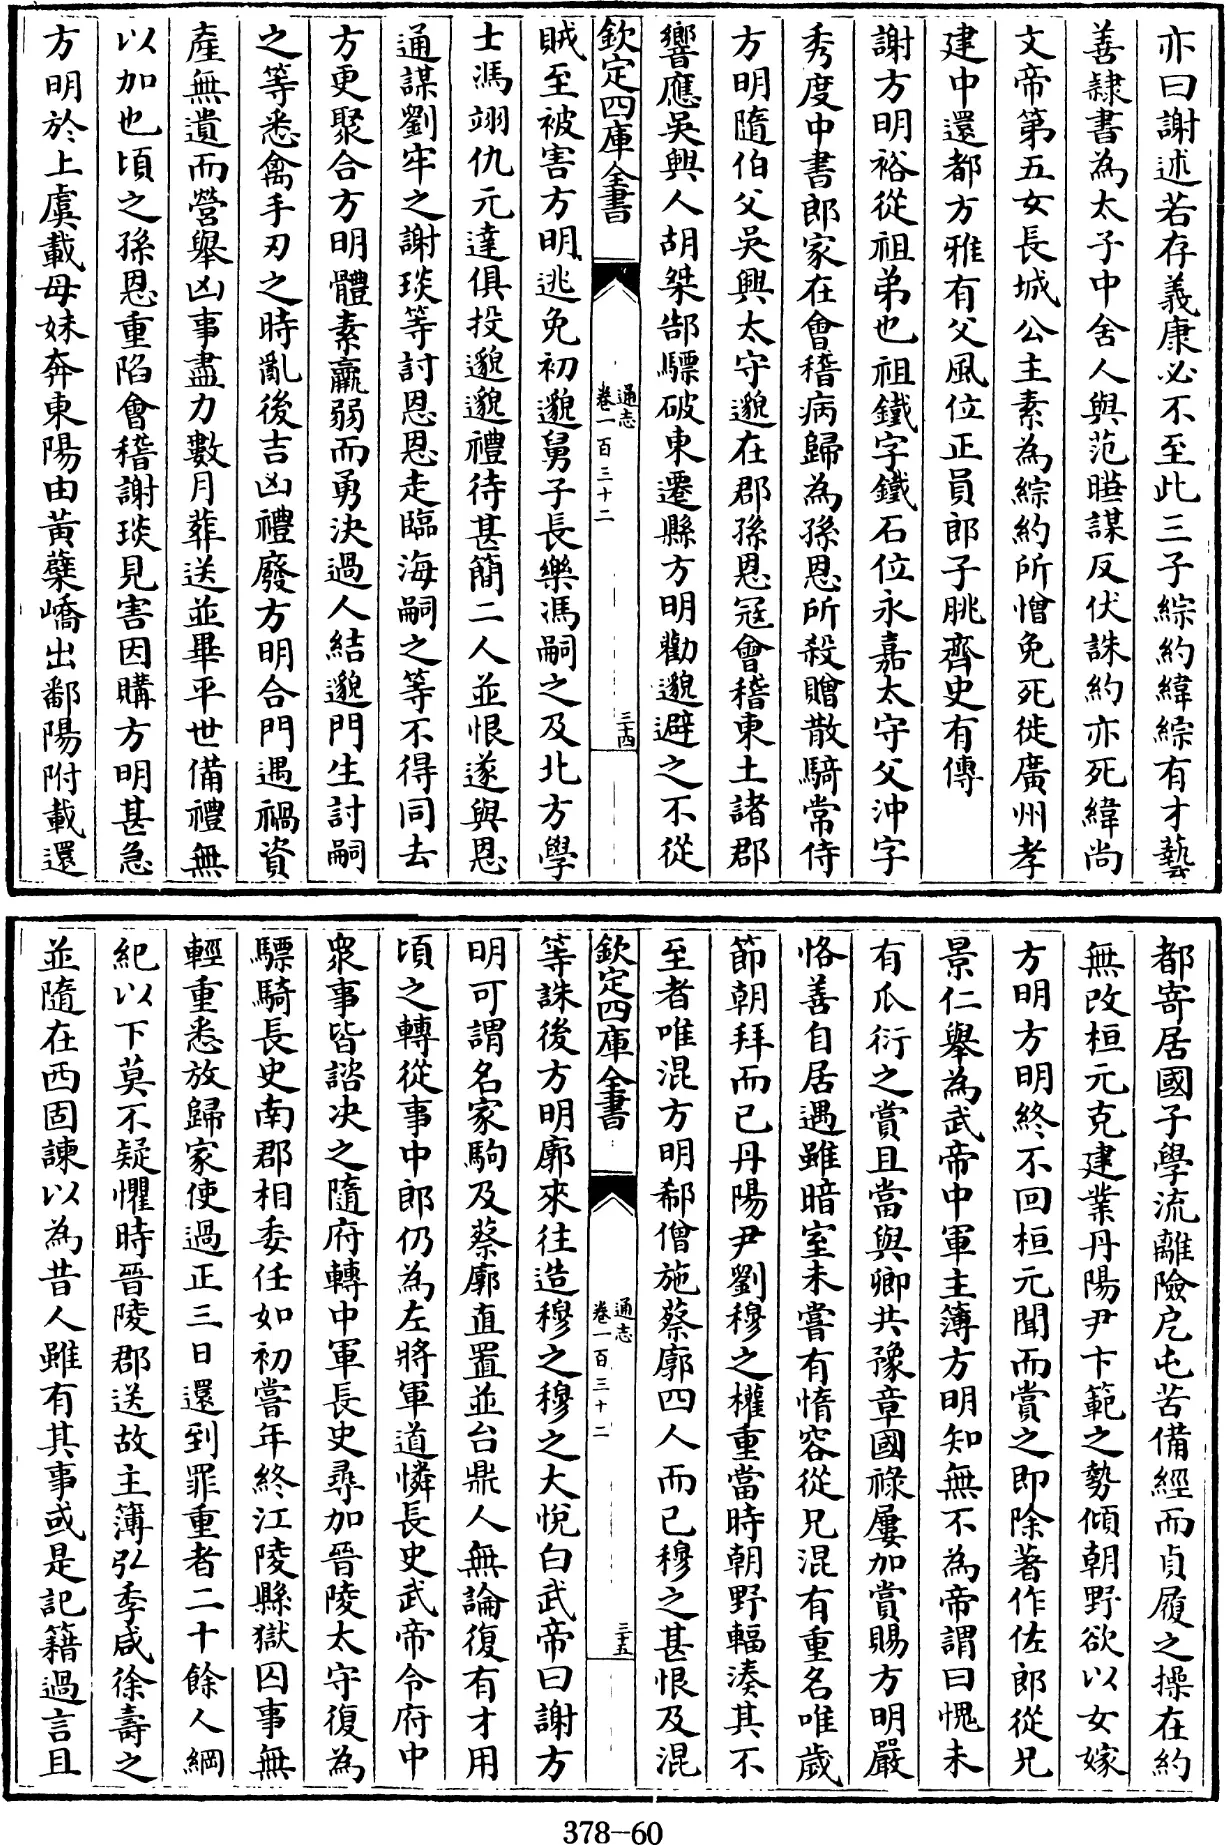 亦曰謝述若存義康必不至此三子綜約緯綜有才藝
善隸書為太子中舍人與范曄謀反伏誅約亦死緯尚
文帝第五女長城公主素為綜約所憎免死徙廣州孝
建中還都方雅有父風位正員郎子朓齊史有傳
謝方明裕從祖弟也祖鐵字鐵石位永嘉太守父沖字
秀度中書郎家在會稽病歸為孫恩所殺贈散騎常侍
方明隨伯父吳興太守邈在郡孫恩冦會稽東土諸郡
響應吳興人胡桀郜驃破東遷縣方明勸邈避之不從
欽定四庫全書
通志
卷一百三十二
三十四
賊至被害方明逃免初邈舅子長樂馮嗣之及北方學
士馮翊仇元達俱投邈邈禮待甚簡二人並恨遂與恩
通謀劉牢之謝琰等討恩恩走臨海嗣之等不得同去
方更聚合方明體素羸弱而勇決過人結邈門生討嗣
之等悉禽手刃之時亂後吉凶禮廢方明合門遇禍資
產無遺而營舉凶事盡力數月葬送並畢平世備禮無
以加也頃之孫恩重陷會稽謝琰見害因購方明甚急
方明於上虞載母妹奔東陽由黃蘗嶠出鄱陽附載還
都寄居國子學流離險戹屯苦備經而貞履之操在約
無改桓元克建業丹陽尹卞範之勢傾朝野欲以女嫁
方明方明終不回桓元聞而賞之即除著作佐郎從兄
景仁舉為武帝中軍主簿方明知無不為帝謂曰愧未
有瓜衍之賞且當與卿共豫章國祿屢加賞賜方明嚴
恪善自居遇雖暗室未嘗有惰容從兄混有重名唯歲
節朝拜而已丹陽尹劉穆之權重當時朝野輻湊其不
至者唯混方明郗僧施蔡廓四人而已穆之甚恨及混
欽定四庫全書
通志
卷一百三十二
三十五
等誅後方明廓來往造穆之穆之大悅白武帝曰謝方
明可謂名家駒及蔡廓直置並台鼎人無論復有才用
頃之轉從事中郎仍為左將軍道憐長史武帝令府中
衆事皆諮决之隨府轉中軍長史尋加晉陵太守復為
驃騎長史南郡相委任如初嘗年終江陵縣獄囚事無
輕重悉放歸家使過正三日還到罪重者二十餘人綱
紀以下莫不疑懼時晉陵郡送故主簿弘季咸徐壽之
並隨在西固諫以為昔人雖有其事或是記籍過言且
378-60